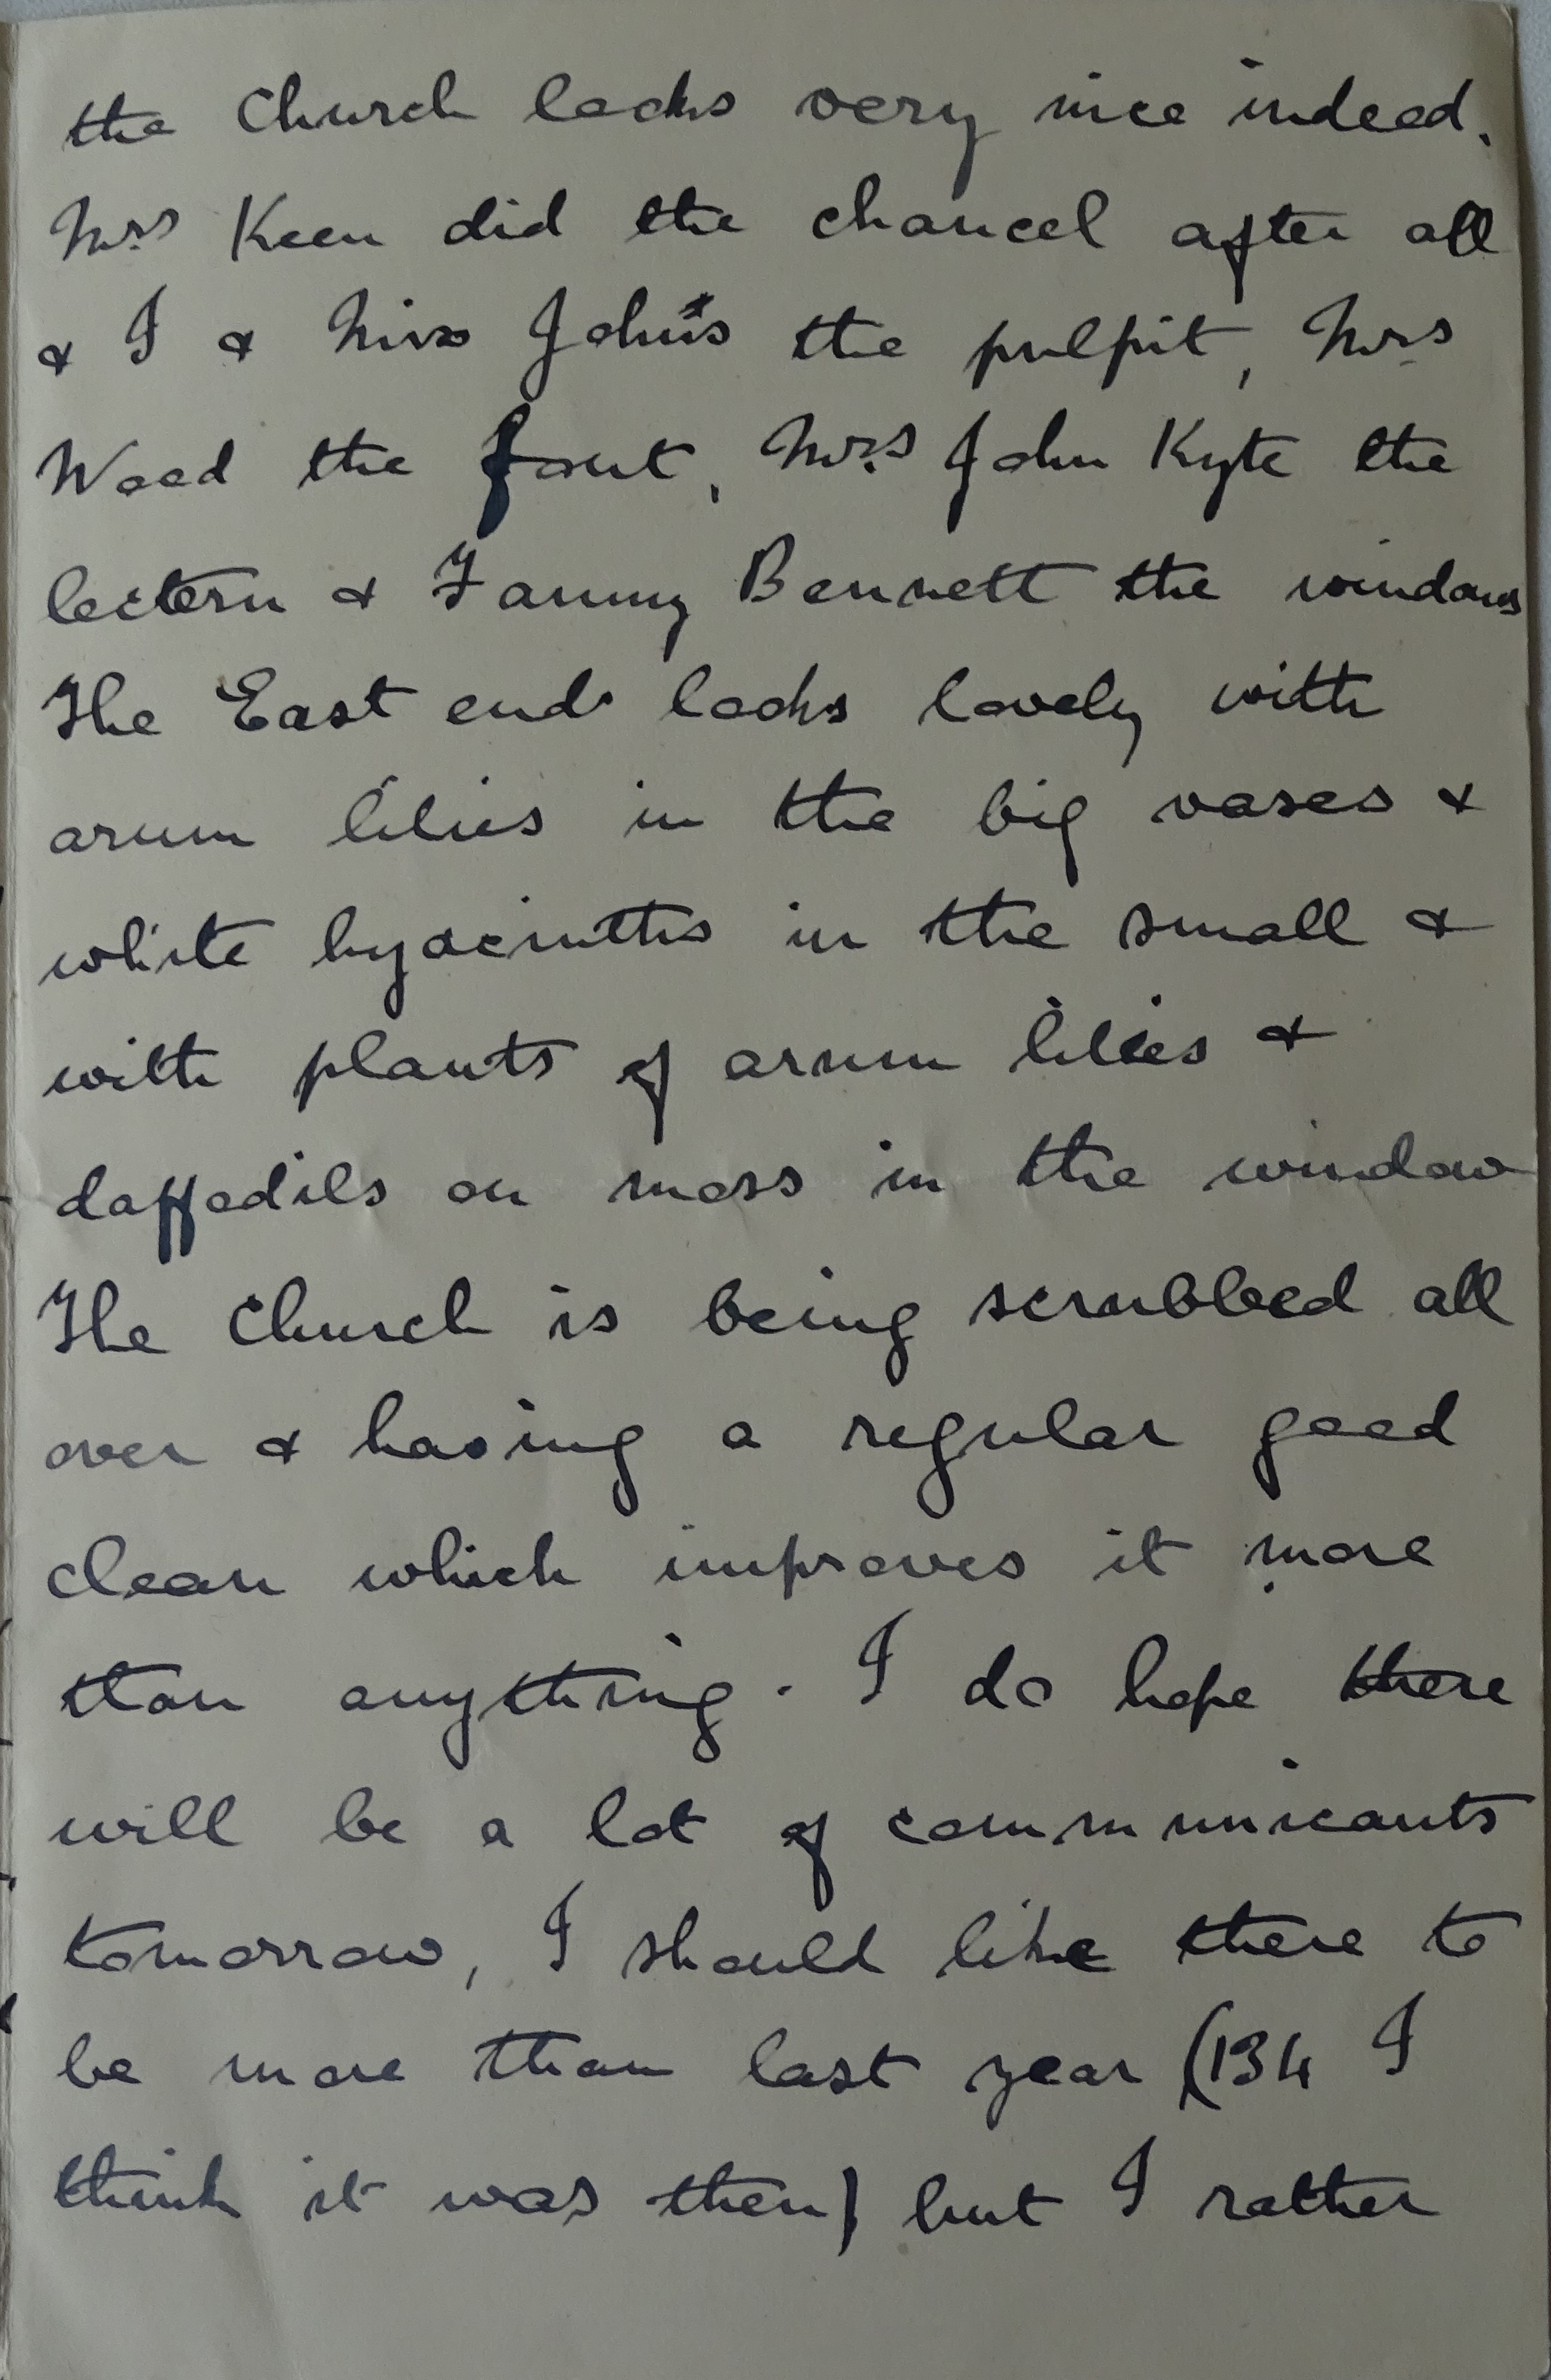 the Church looks very nice indeed.
Mrs Keen did the chancel after all
& I & Miss John's the pulpit, Mrs
Wood the font, Mrs John Kyte the
lectern & Fanny Bennett the windows
The East end looks lovely with
arum lilies in the big vases &
white hyacinths in the small &
with plants of arum lilies &
daffodils on moss in the window
The Church is being scrubbed all
over & having a regular good
clean which improves it more
than anything. I do hope there
will be a lot of communicants
tomorrow, I should like there to
be more than last year (134 I
think it was then) but I rather